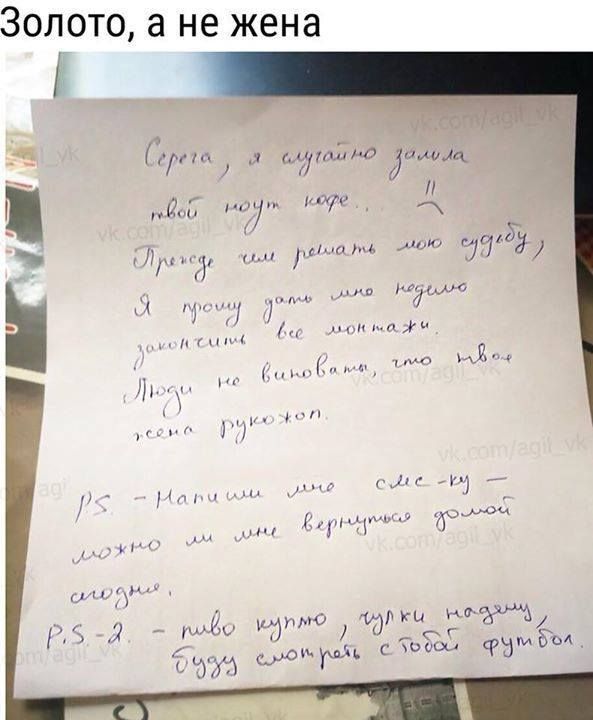 Золото, а не жена
Серега, я случайно залила
твой ноут кофе..
Прежде чем решать мою судьбу,
Я прошу дать мне неделю
закончить все монтажи.
Люди не виноваты, что твоя
жена рукожоп.
P.S. - Напиши мне смс-ку -
можно ли мне вернуться домой
сегодня.
P.S-2. - пиво куплю, чулки надену,
буду смотреть с тобой футбол.
vk.com/agil_vk
vk.com/agil_vk
vk.com/agil_vk
vk.com/agil_vk
vk.com/agil_vk